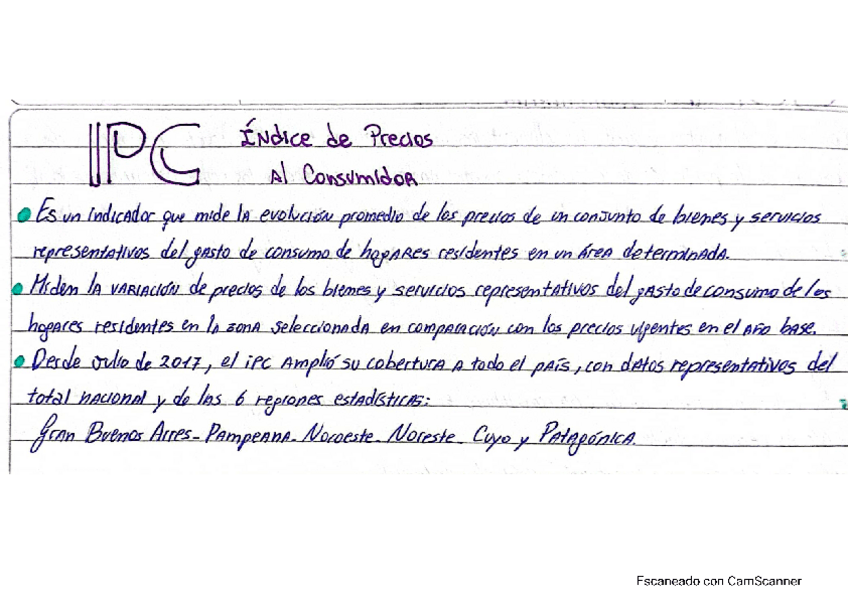 IPC Índice de Precios
Al Consumidor
Es un indicador que mide la evolución promedio de los precios de un conjunto de bienes y servicios
representativos del gasto de consumo de hogares residentes en un área determinada.
Miden la variación de precios de los bienes y servicios representativos del gasto de consumo de los
hogares residentes en la zona seleccionada en comparación con los precios vigentes en el año base.
Desde Julio de 2017, el IPC amplió su cobertura a todo el país, con datos representativos del
total nacional y de las 6 regiones estadísticas:
Gran Buenos Aires - Pampeana - Noroeste - Noreste - Cuyo y Patagónica.
Escaneado con CamScanner